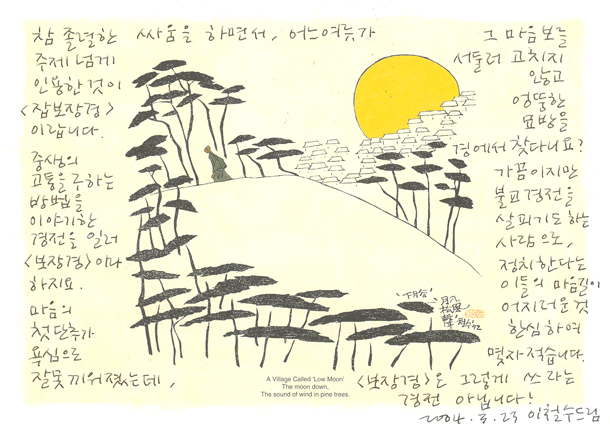 참 졸렬한 싸움을 하면서, 어느여류가
주제넘게
인용한 것이
<잡보장경>
이랍니다.
중생의
고통을 구하는
방법을
이야기한
경전을 일러
<보장경>이라
하지요.
마음의
첫단추가
욕심으로
잘못 끼워졌는데,
그 마음보를
서둘러 고치지
않고
엉뚱한
묘방을
경에서 찾다니요?
가끔이지만
불교경전을
살피기도 하는
사람으로,
정치한다는
이들의 마음길이
어지러운 것
한심하여
몇자 적습니다.
<보장경>은 그렇게 쓰라는
경전 아닙니다!
2004. 3. 23 이철수드림
松風
聲 철수
A Village Called 'Low Moon'
The moon down,
The sound of wind in pine trees.